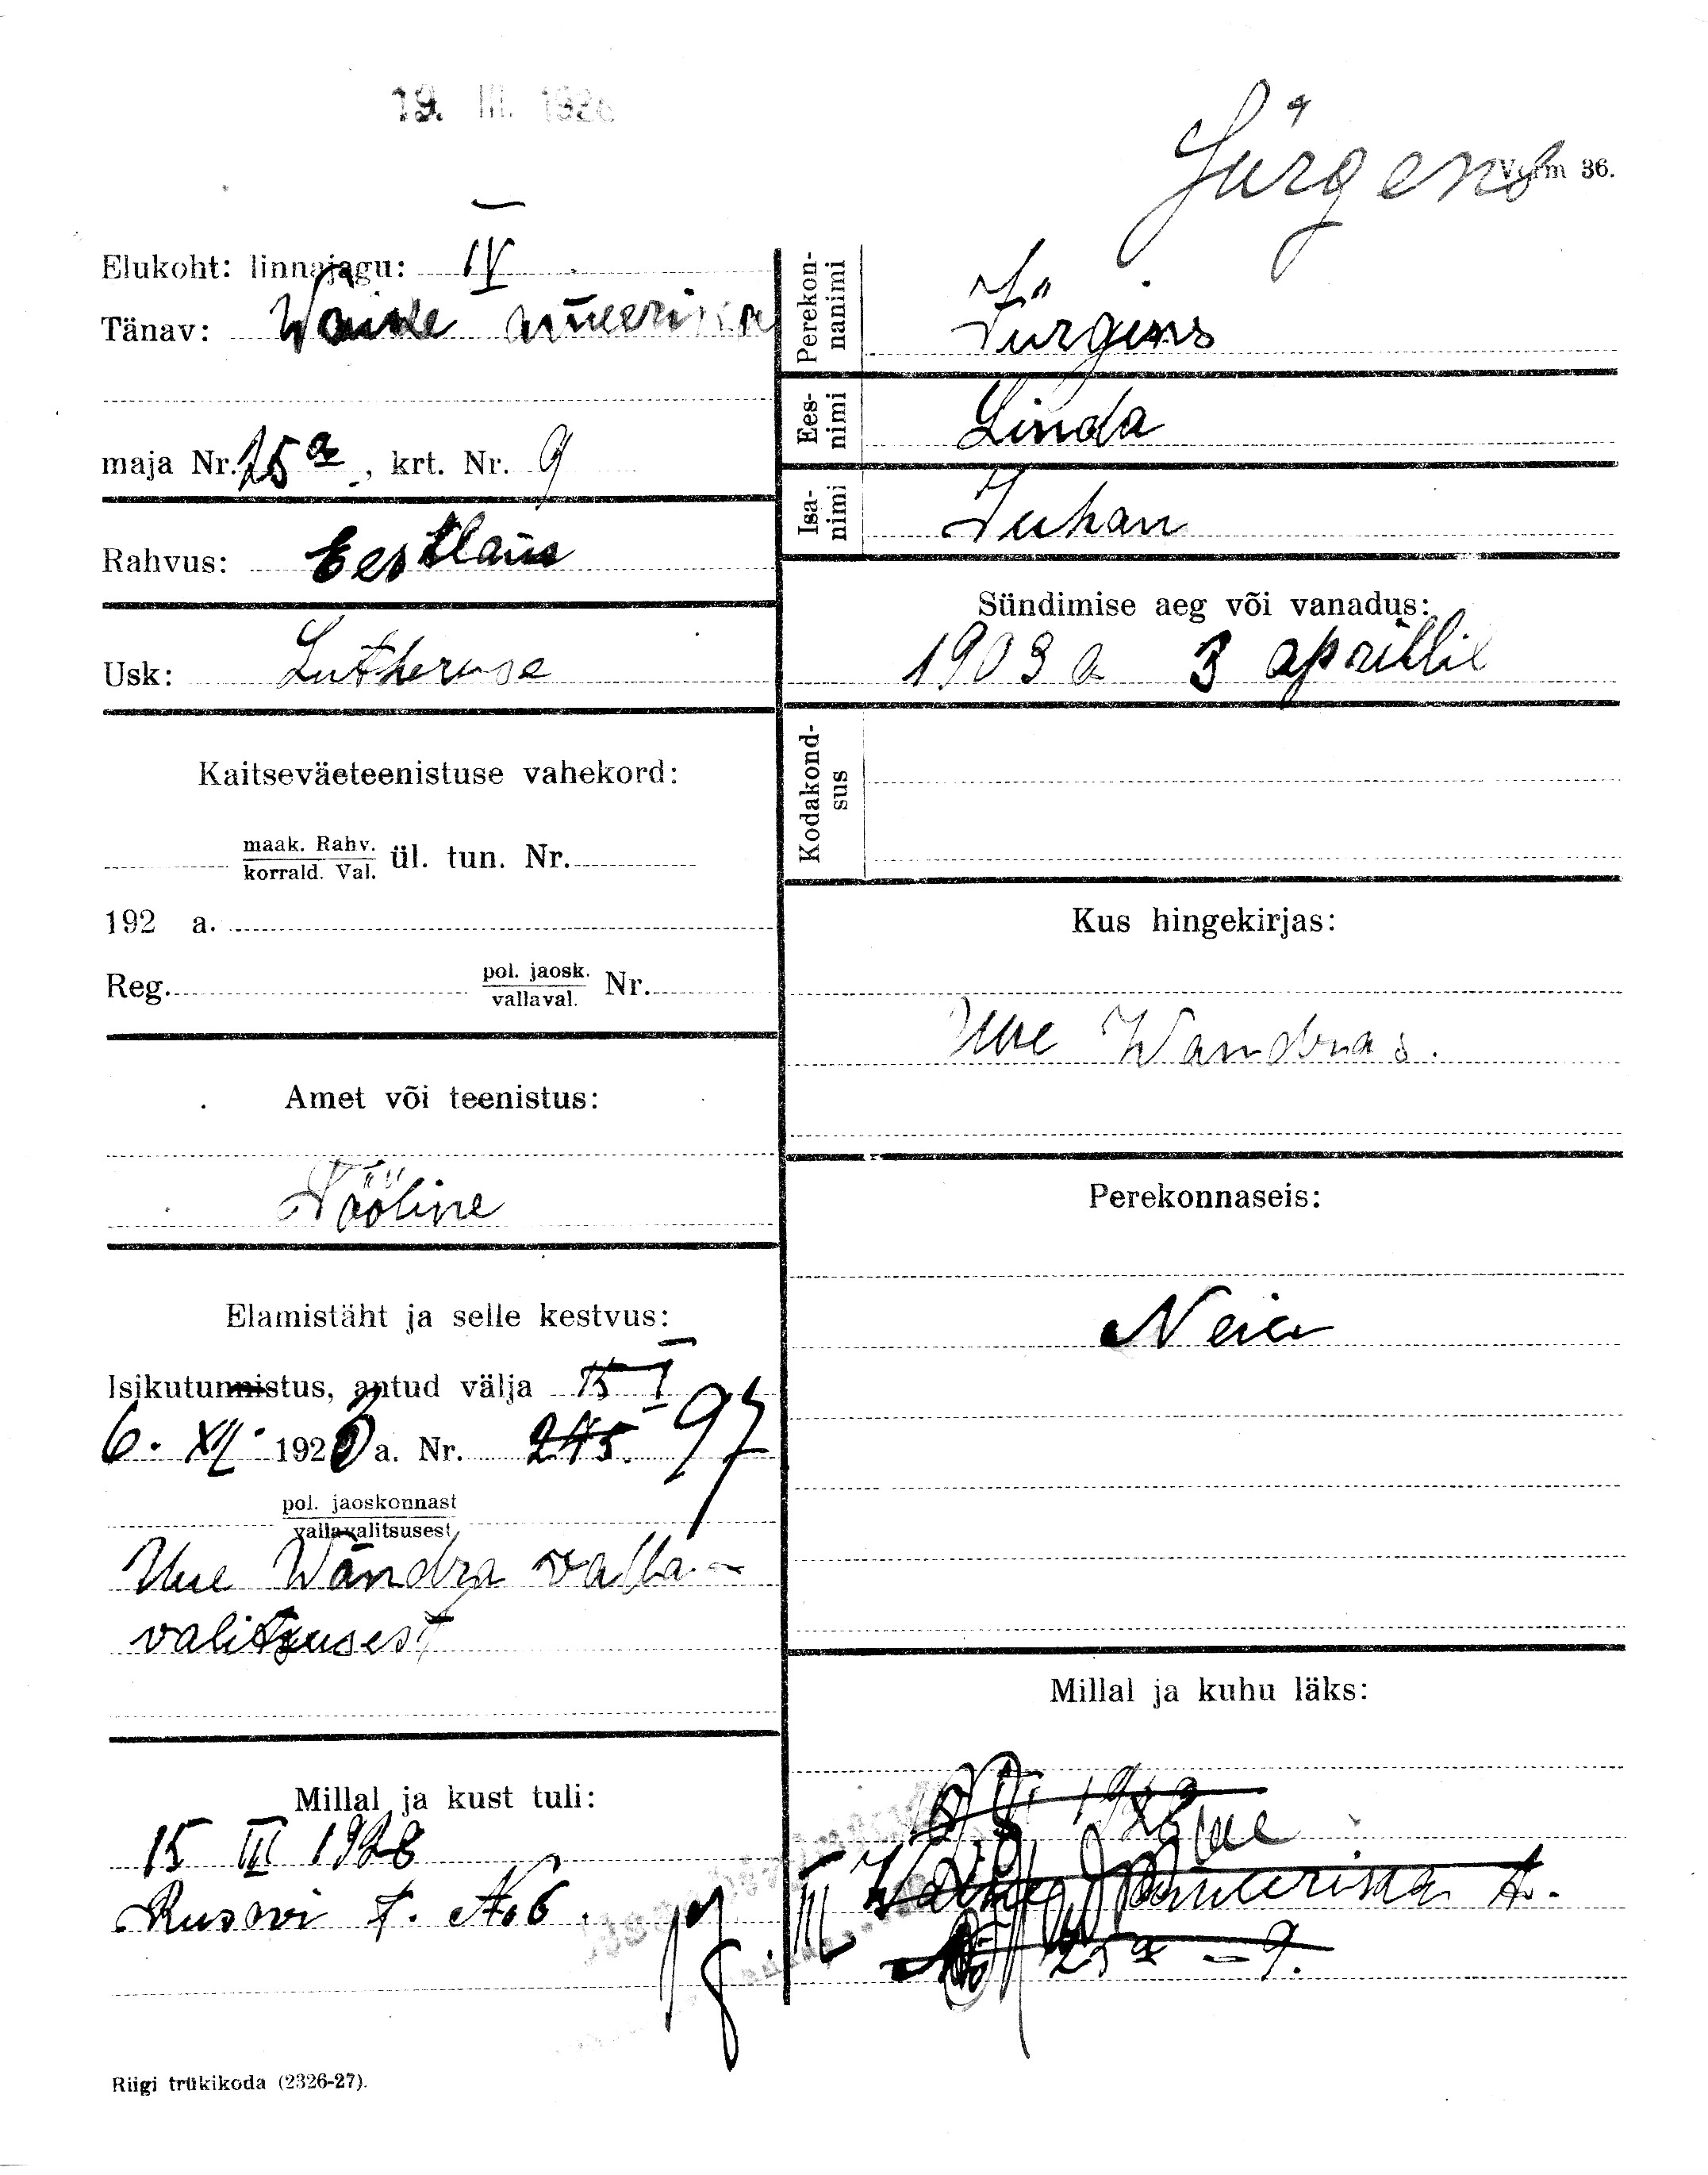 19. III. 1928
Jürgens
Vorm 36.
Elukoht: linnajagu: IV
Tänav: Wäike Ameerika
maja Nr. 25a, krt. Nr. 9
Rahvus: Eestlane
Usk: Lutheruse
Kaitseväeteenistuse vahekord:
maak. Rahv.
korrald. Val. ül. tun. Nr.
192 a.
Reg. pol. jaosk. Nr.
vallaval.
Amet või teenistus:
Tööline
Elamistäht ja selle kestvus:
Isikutunnistus, antud välja 15 I
6. XII. 1923 a. Nr. 275. 97
pol. jaoskonnast
vallavalitsusest
Uue Wändra valla-
valitsusest
Millal ja kust tuli:
15 III 1928
Rusovi t. No 6.
Perekon-
nanimi
Jürgens
Ees-
nimi
Linda
Isa-
nimi
Juhan
Sündimise aeg või vanadus:
1903 a 3 aprillil
Kodakond-
sus
Kus hingekirjas:
Uue Wandras.
Perekonnaseis:
Neiu
Millal ja kuhu läks:
III Waike Ameerika t.
25a - 9.
Riigi trükikoda (2326-27).